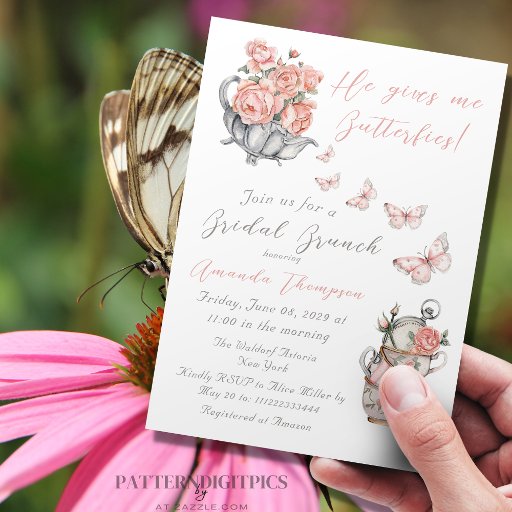 He gives me
Butterfies!
Join us for a
Bridal Brunch
honoring
Amanda Thompson
Friday, June 08, 2029 at
11:00 in the morning
The Waldorf Astoria
New York
Kindly RSVP to Alice Miller by
May 20 to: 111222333444
Registered at Amazon
PATTERNDIGITPICS
by
AT ZAZZLE.COM